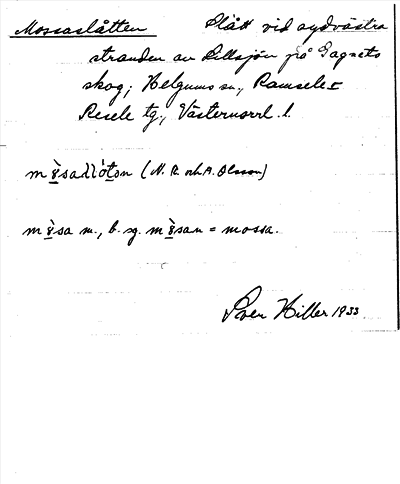 Mossaslåtten Slått vid sydvästra
stranden av Lillsjön på Gagnets
skog; Helgums sn., Ramsele-
Resele tg., Västernorrl. l.
(N. R. och A. Olsson)
m., b. sg. = mossa.
Sven Hiller 1933